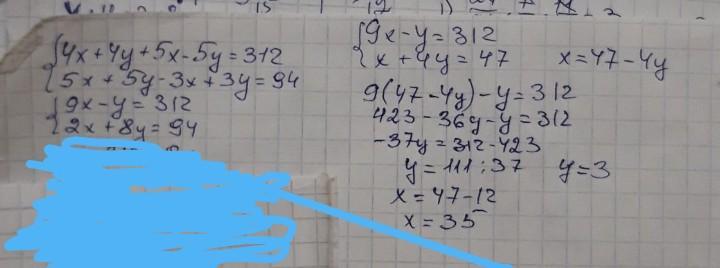 {4x+4y+5x-5y=312
{5x+5y-3x+3y=94
{9x-y=312
{2x+8y=94
{9x-y=312
{x+4y=47 x=47-4y
9(47-4y)-y=312
423-36y-y=312
-37y=312-423
y=111:37 y=3
x=47-12
x=35